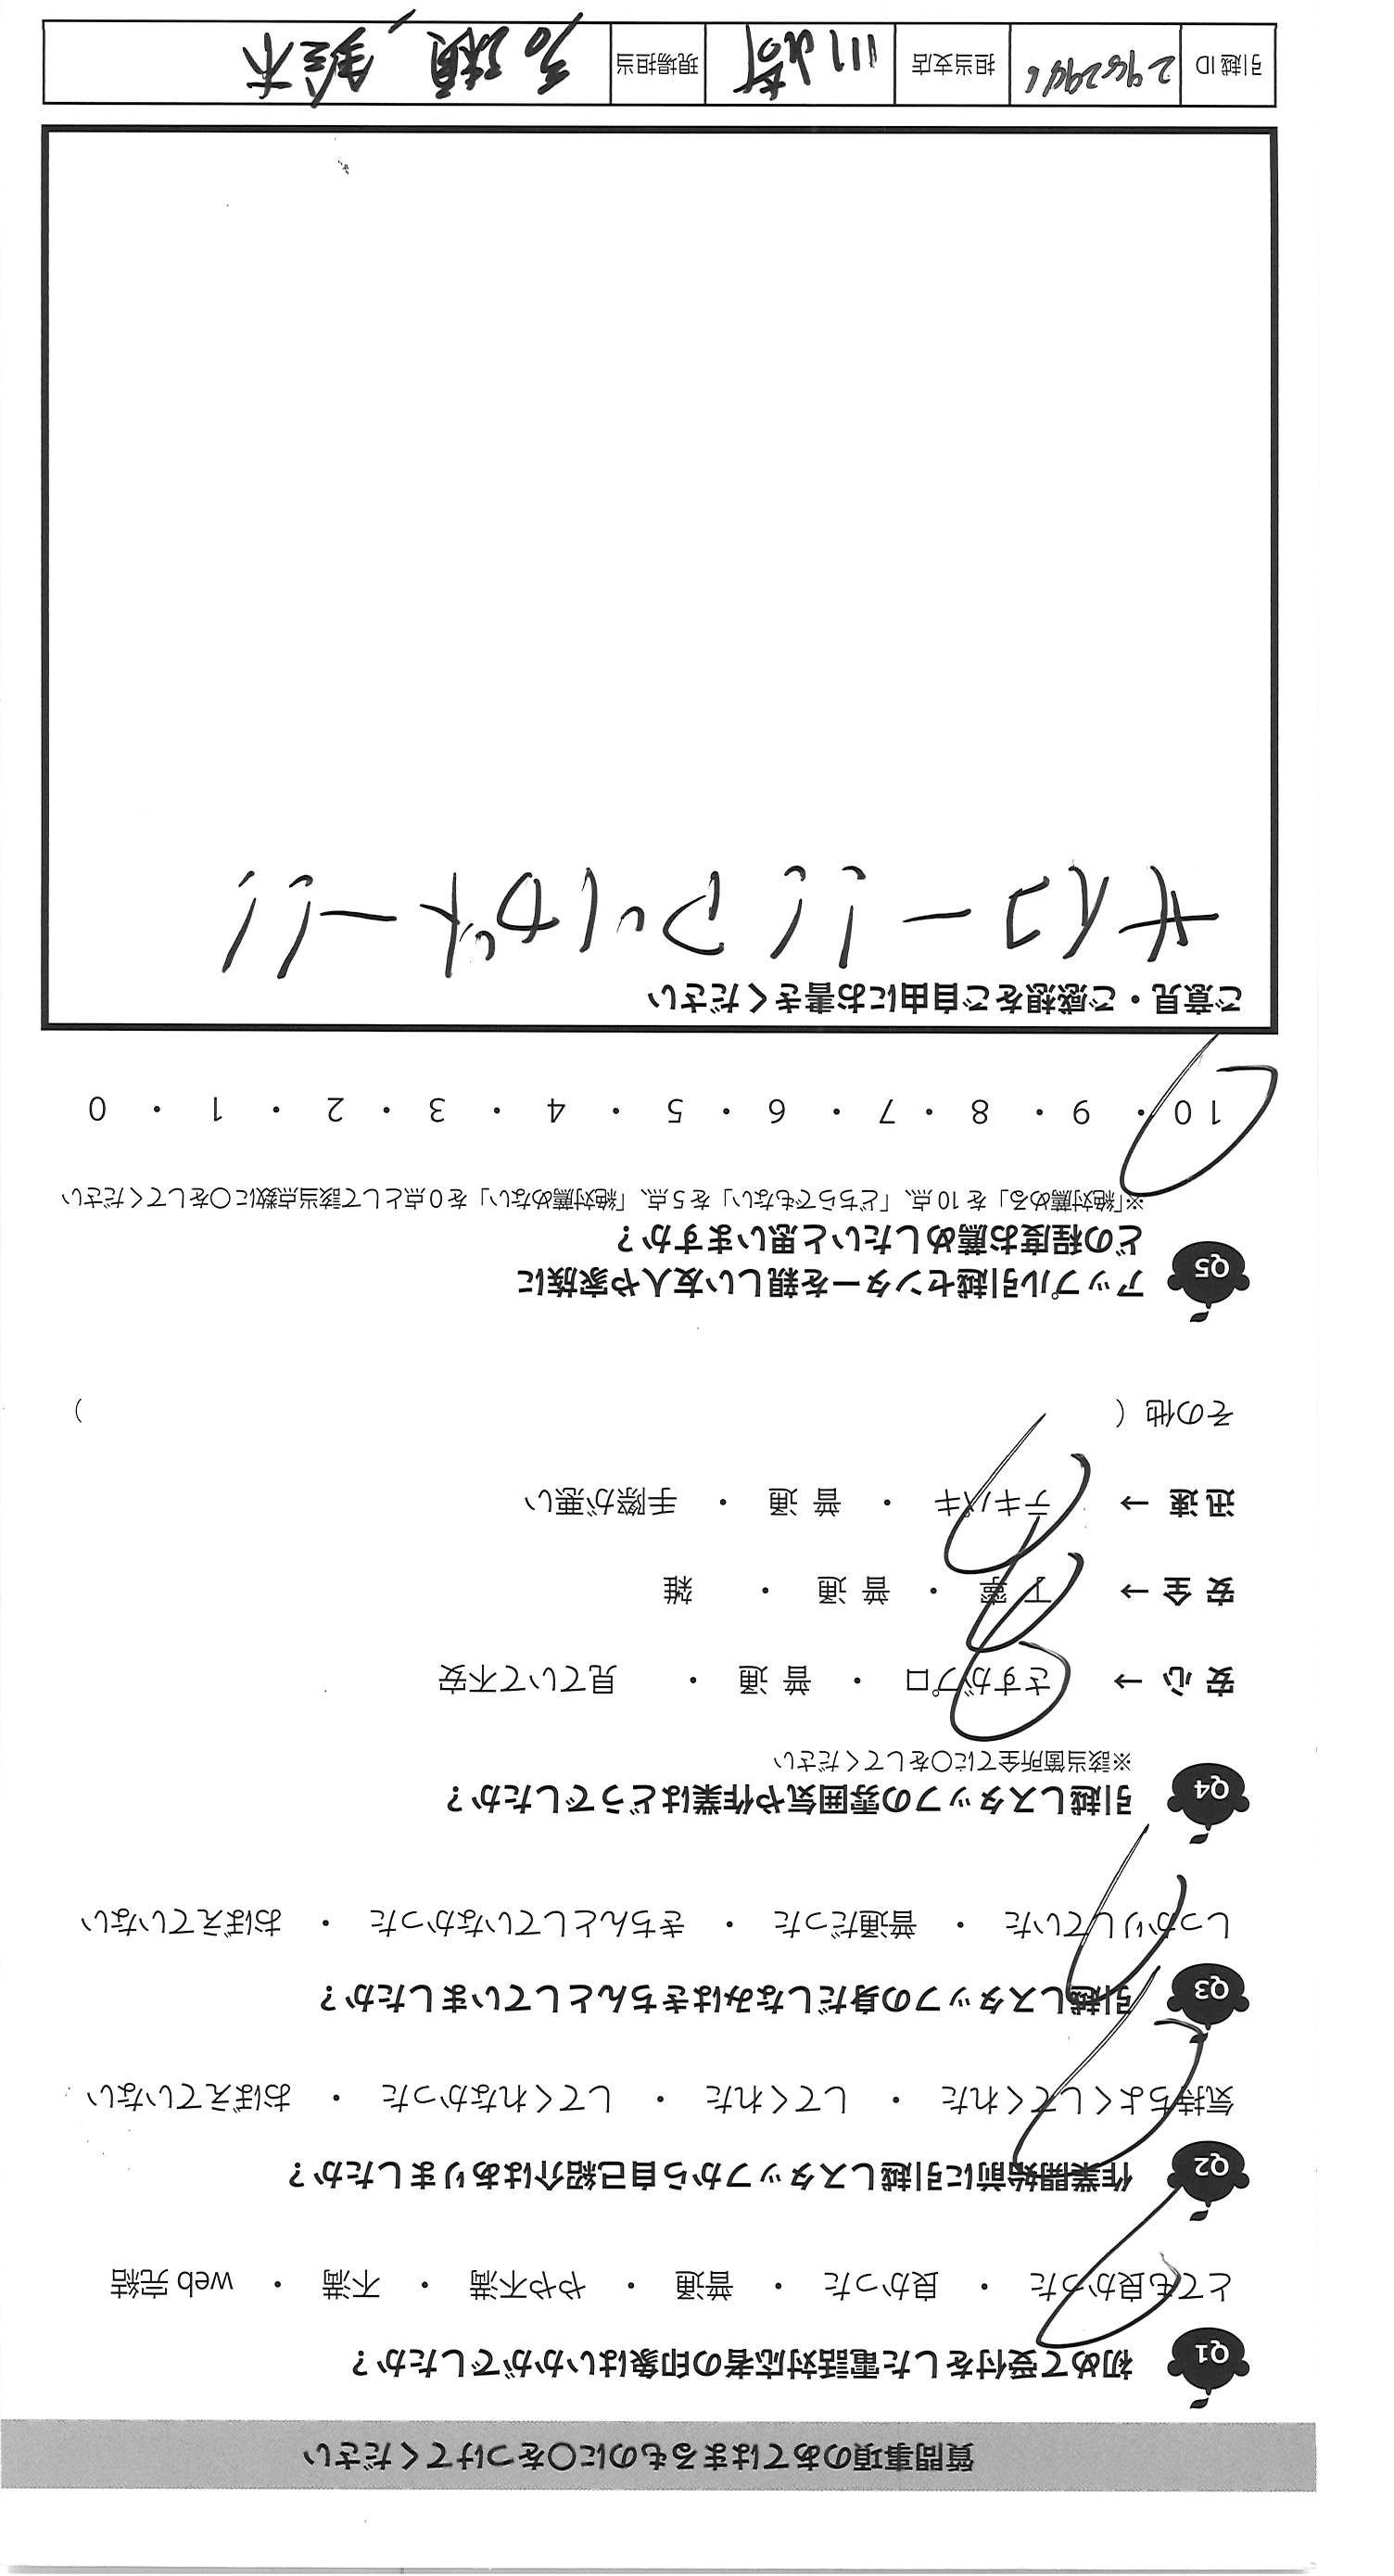 質問事項のあてはまるものに○をつけてください
Q1 初めて受付をした電話対応者の印象はいかがでしたか？
とても良かった ・ 良かった ・ 普通 ・ やや不満 ・ 不満 ・ web 完結
Q2 作業開始前に引越しスタッフから自己紹介はありましたか？
気持ちよくしてくれた ・ してくれた ・ してくれなかった ・ おぼえていない
Q3 引越しスタッフの身だしなみはきちんとしていましたか？
しっかりしていた ・ 普通だった ・ きちんとしていなかった ・ おぼえていない
Q4 引越しスタッフの雰囲気や作業はどうでしたか？
※該当箇所全てに○をしてください
安心 → さすがプロ ・ 普通 ・ 見ていて不安
安全 → 丁寧 ・ 普通 ・ 雑
迅速 → テキパキ ・ 普通 ・ 手際が悪い
その他（ ）
Q5 アップル引越センターを親しい友人や家族に
どの程度お薦めしたいと思いますか？
※「絶対薦める」を 10 点、「どちらでもない」を 5 点、「絶対薦めない」を 0 点として該当点数に○をしてください
10 ・ 9 ・ 8 ・ 7 ・ 6 ・ 5 ・ 4 ・ 3 ・ 2 ・ 1 ・ 0
ご意見・ご感想をご自由にお書きください
サイコー!!
引越 ID 担当支店 川崎 現場担当 鈴木